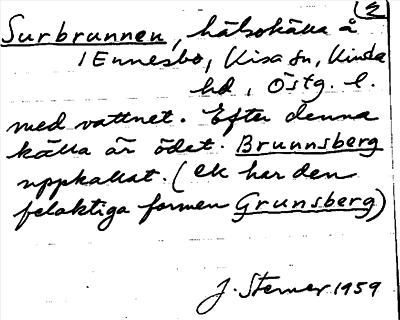 (2
Surbrunnen, hälsokälla å
1 Ennesbo, Kisa sn, Kinda
hd, Östg. l.
med vattnet. Efter denna
källa är ödet. Brunnsberg
uppkallat. (ek har den
felaktiga formen Grunsberg)
J. Sterner 1959